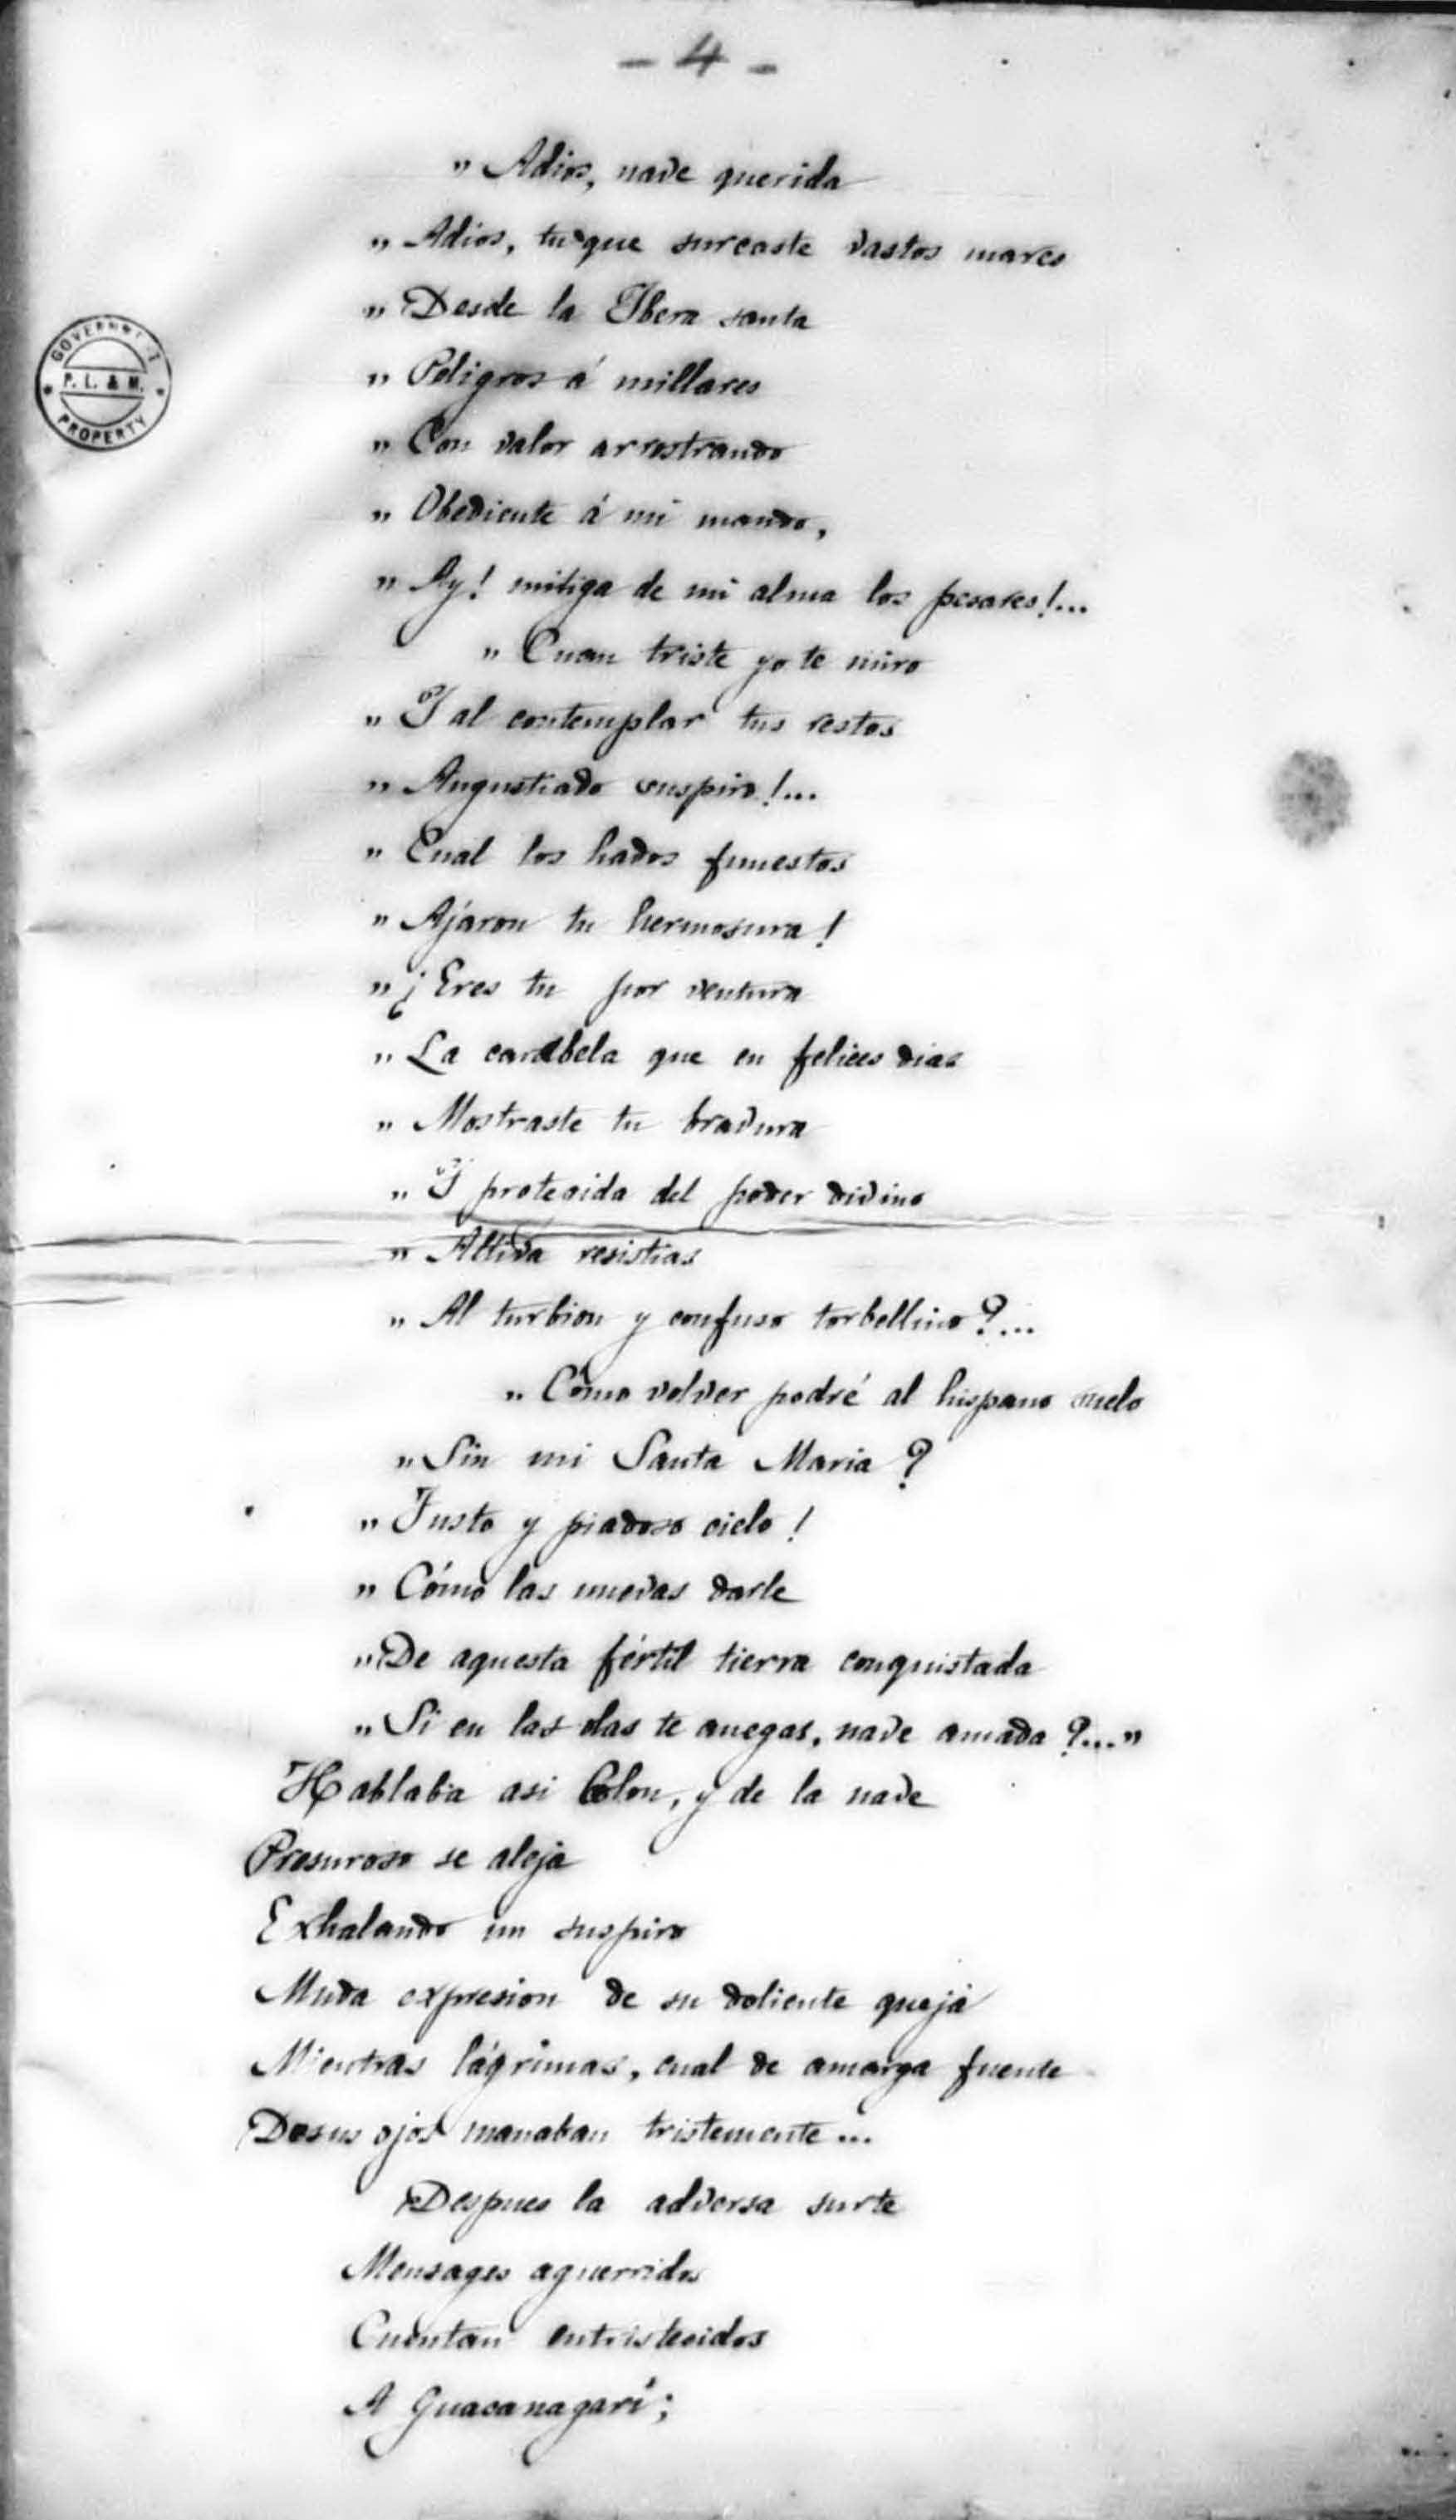 - 4 -
„ Adios, nave querida
„ Adios, tu que surcaste vastos mares
„ Desde la Ibera santa
GOVERNMENT
P. L. & M.
PROPERTY
„ Peligros á millares
„ Con valor arrostrando
„ Obediente á mi mando,
„ Ay! mitiga de mi alma los pesares!...
„ Cuan triste yo te miro
„ I al contemplar tus restos
„ Angustiado suspiro!...
„ Cual los hados funestos
„ Ajaron tu hermosura!
„ ¿Eres tu por ventura
„ La carabela que en felices dias
„ Mostraste tu bravura
„ I protegida del poder divino
„ Altiva resistias
„ Al turbion y confuso torbellino?...
„ Cómo volver podré al hispano suelo
„ Sin mi Santa Maria?
„ Justo y piadoso cielo!
„ Cómo las nuevas darle
„ De aquesta fértil tierra conquistada
„ Si en las olas te anegas, nave amada?..."
Hablaba asi Colon, y de la nave
Presuroso se aleja
Exhalando un suspiro
Muda expresion de su doliente queja
Mientras lágrimas, cual de amarga fuente
De sus ojos manaban tristemente...
Despues la adversa surte
Mensages aguerridos
Cuentan entristecidos
A Guacanagarí;